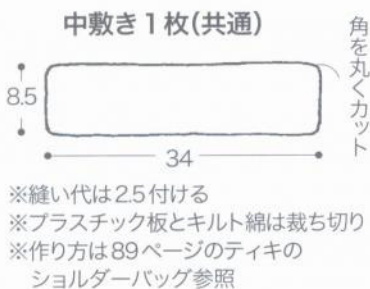 中敷き1枚(共通)
角を丸くカット
8.5
34
※縫い代は2.5付ける
※プラスチック板とキルト綿は裁ち切り
※作り方は89ページのティキの
ショルダーバッグ参照